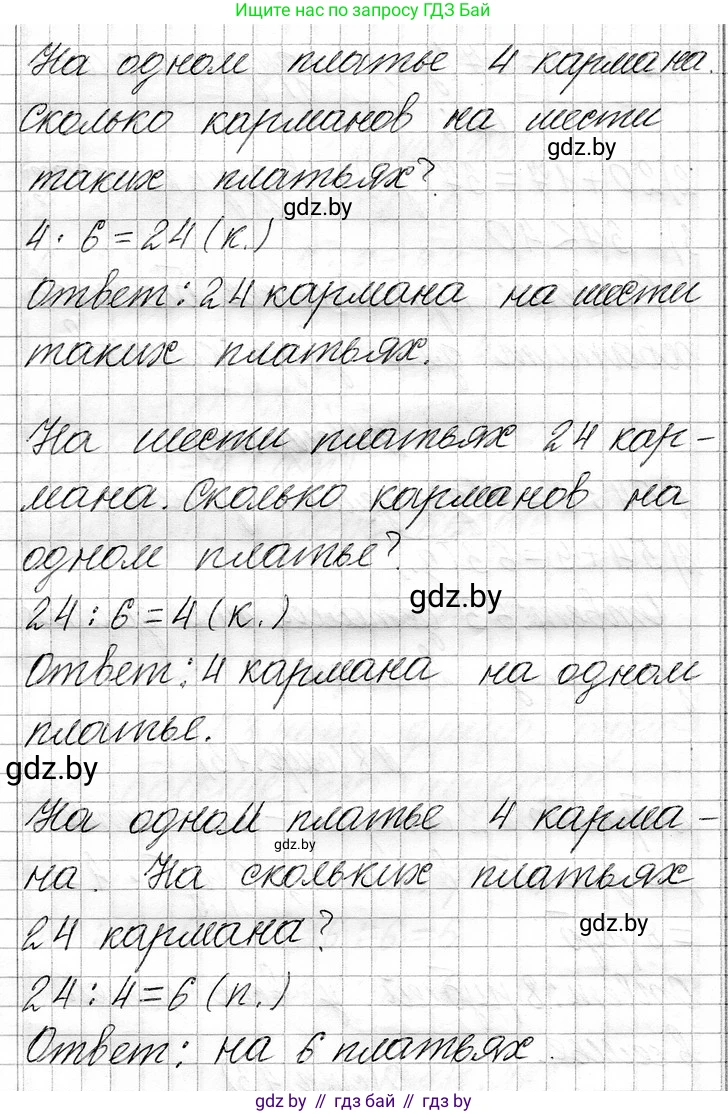 Ищите нас по запросу ГДЗ Бай
На одном платье 4 кармана.
Сколько карманов на шести
gdz.by
таких платьях?
gdz.by
4 · 6 = 24 (к.)
Ответ: 24 кармана на шести
таких платьях.
На шести платьях 24 кар-
мана. Сколько карманов на
одном платье?
gdz.by
24 : 6 = 4 (к.)
Ответ: 4 кармана на одном
платье.
gdz.by
На одном платье 4 карма-
gdz.by
на. На скольких платьях
24 кармана?
gdz.by
24 : 4 = 6 (п.)
Ответ: на 6 платьях.
gdz.by // гдз бай // gdz.by